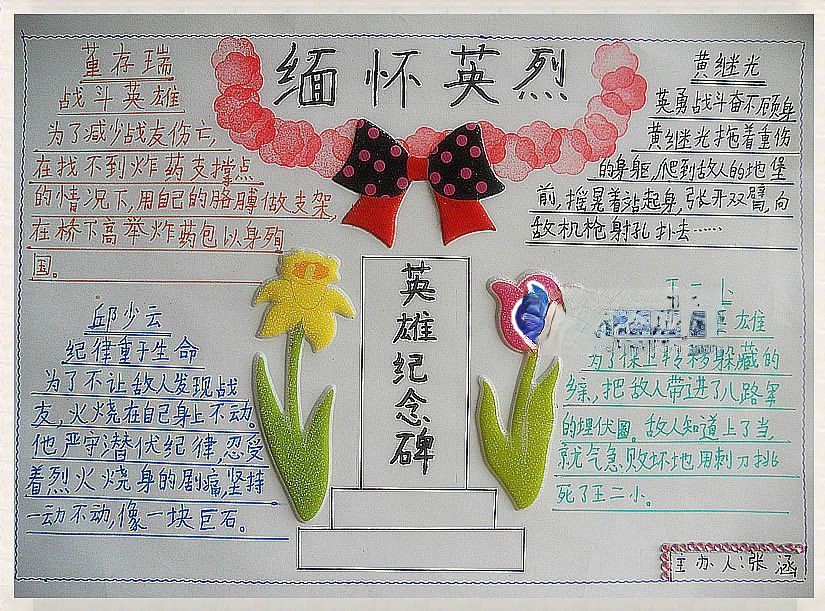 缅怀英烈
董存瑞
战斗英雄
为了减少战友伤亡,
在找不到炸药支撑点
的情况下,用自己的胳膊做支架,
在桥下高举炸药包以身殉
国。
黄继光
英勇战斗奋不顾身
黄继光拖着重伤
的身躯,爬到敌人的地堡
前,摇晃着站起身,张开双臂,向
敌机枪射孔扑去……
英雄纪念碑
邱少云
纪律重于生命
为了不让敌人发现战
友,火烧在自己身上不动。
他严守潜伏纪律,忍受
着烈火烧身的剧痛,坚持
一动不动,像一块巨石。
雄
为了保卫转移躲藏的
,把敌人带进了八路军
的埋伏圈。敌人知道上了当,
就气急败坏地用刺刀挑
死了王二小。
主办人:张涵